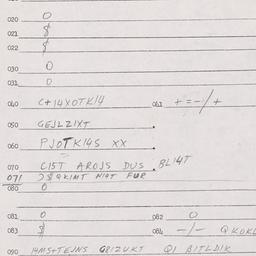 020 0
021 $
022 $
030 0
031 0
040 C+14XOTK14 041 +=-/+
050 GEJLZIXT
060 PJOTK14S XX
070 C15T AROJS DUS BL14T
071 J$QKIMT N14T FUR
080 0
081 0 082 0
083 $ 084 -/- QKOKL
090 14MS+TEJNS GRIZUKT QI BITLDIK